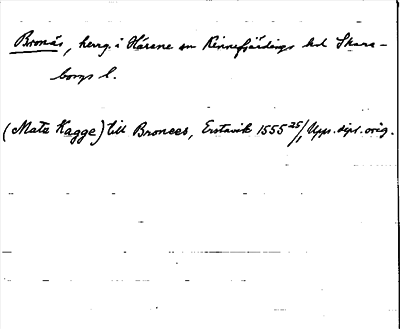 Bronäs, herrg. i Härene sn Kinnefjärdings hd Skara-
borgs l.
(Mats Kagge) till Bronees, Erstavik 1555 25/1 Upps. dipl. orig.